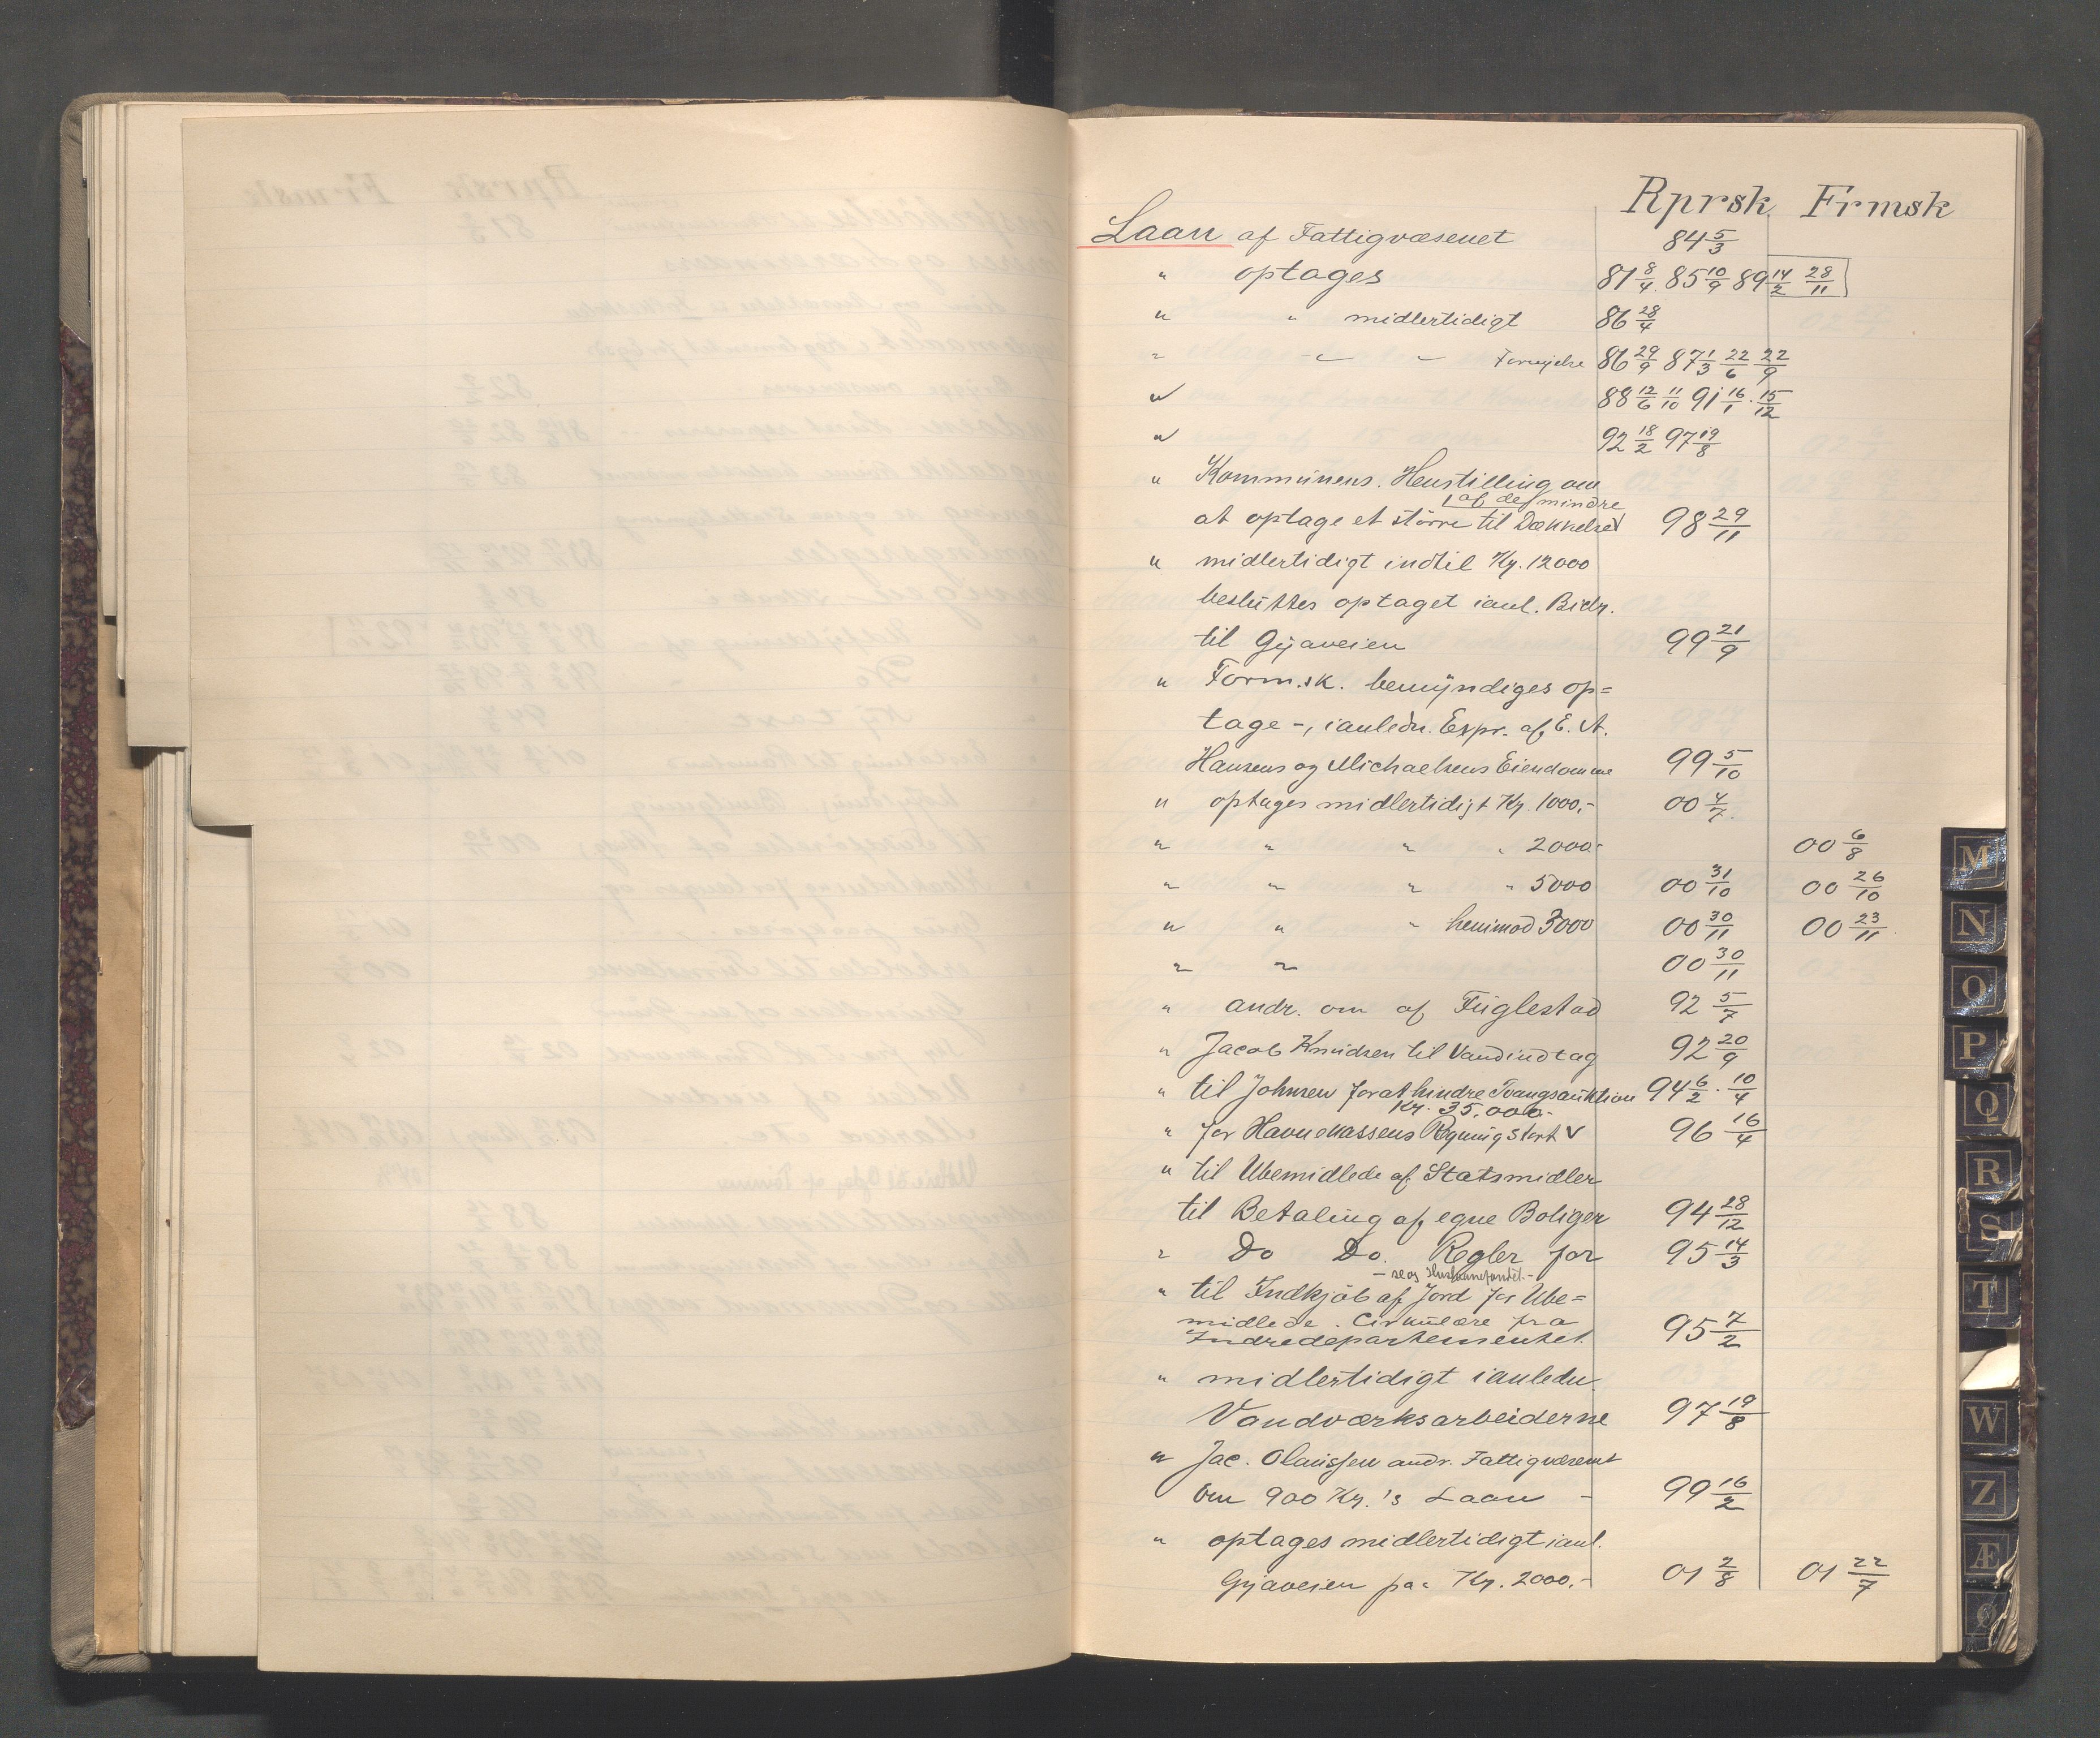 Rprsk. Frmsk
Laan af Fattigvæsenet 84 5/3
" optages 81 8/4 85 10/9 89 14/2 28/11
" " midlertidigt 86 28/4
" " " Fornyelse 86 29/9 87 1/3 22/6 22/9
" 88 12/6 11/10 91 16/1 · 15/12
" 92 18/2 97 19/8
" Kommunens. Henstilling om
af de mindre
at optage et större til Dækkelse 98 29/11
" midlertidigt indtil Kr. 12000
besluttes optaget ianl. Bidr.
til Gjaveien 99 21/9
" Form.sk. bemyndiges op=
tage -, ianledn. Expr. af E. A.
Hansens og Michaelsens Eiendomme 99 5/10
" optages midlertidigt Kr. 1000,- 00 4/7
" " " " 2000.- 00 6/8
" " " " 5000 00 31/10 00 26/10
" " " henimod 3000 00 30/11 00 23/11
" " 00 30/11
" andr. om af Fuglestad 92 5/7
" Jacob Knudsen til Vandindtag 92 20/9
" til Johnsen forat hindre Tvangsauktion 94 6/2 · 10/4
Kr. 35.000.-
" for Havnekassens Regning stort V 96 16/4
" til Ubemidlede af Statsmidler
til Betaling af egne Boliger 94 28/12
" Do Do. Regler for 95 14/3
- se og Huslaanefondet. -
" til Indkjöb af Jord for Ube=
midlede. Cirkulære fra
Indredepartementet. 95 7/2
" midlertidigt ianledn.
Vandværksarbeiderne 97 19/8
" Jac. Olaussen andr. Fattigvæsenet
om 900 Kr.'s Laan - 99 16/2
" optages midlertidigt ianl.
Gjaveien paa Kr. 2000.- 01 2/8 01 22/7
M
N
O
P
Q
R
S
T
W
Z
Æ
Ø